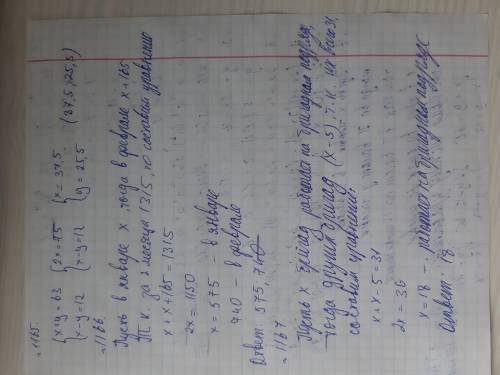 №1165
{x+y=63 {2x=75 {x=37,5
{x-y=12 {x-y=12 {y=25,5 (37,5; 25,5)
№1166
Пусть в январе x, тогда в феврале x+165
Т.к. за 2 месяца 1315, то составим уравнение
x+x+165=1315
2x=1150
x=575 - в январе
740 - в феврале
Ответ: 575, 740
№1167
Пусть x бригад работают на бригадном подряде,
тогда других бригад (x-5), т.к. их всего 31,
составим уравнение.
x+x-5=31
2x=36
x=18 - работают на бригадном подряде
Ответ: 18